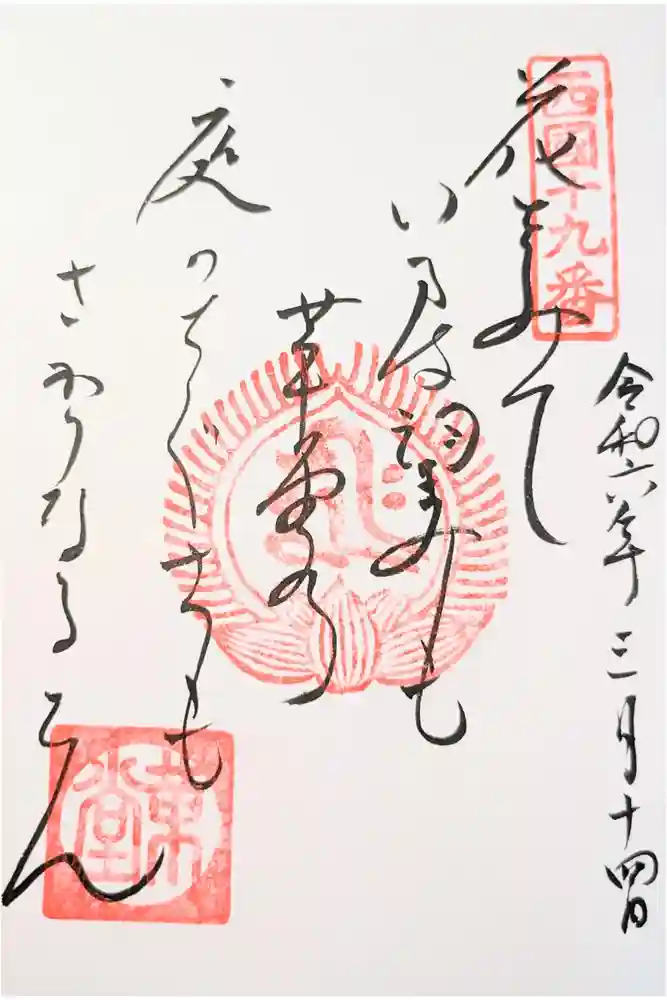 西國十九番
令和六年三月十四日
花をみて
いまは望みも
革堂の
庭のちぐさも
さかりなるらん
革堂